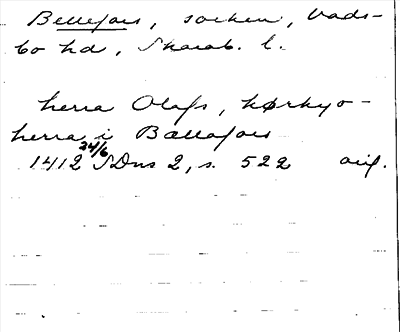 Bellefors, socken, Vads-
bo hd, Skarab. l.
herra Olafs, kørkyo-
herra i Bællafors
1412 24/6 SDns 2, s. 522 avig.